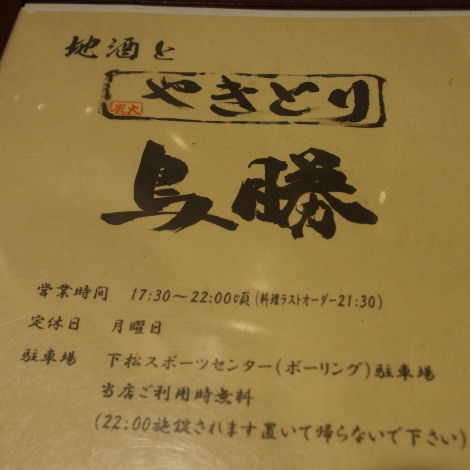 地酒と
やきとり
炭火
鳥勝
営業時間 17:30～22:00頃(料理ラストオーダー21:30)
定休日 月曜日
駐車場 下松スポーツセンター(ボーリング)駐車場
当店ご利用時無料
(22:00施錠されます置いて帰らないで下さい)